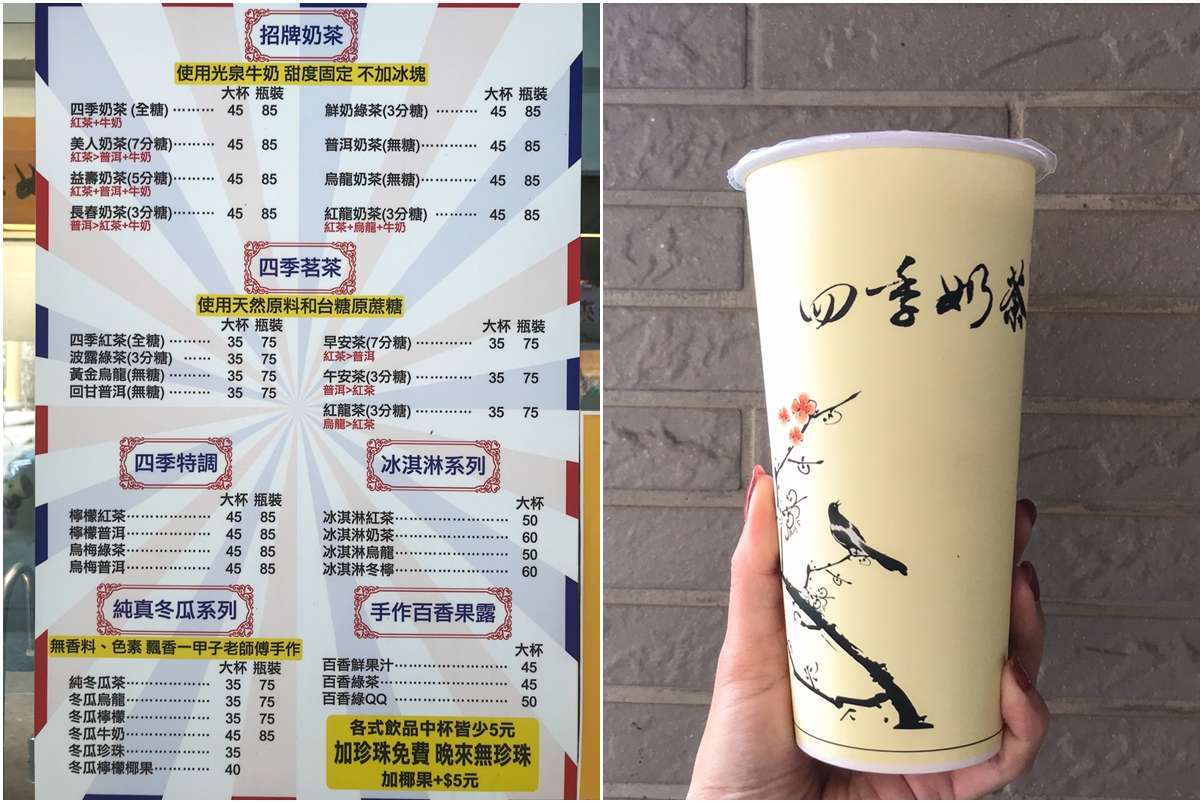 招牌奶茶
使用光泉牛奶 甜度固定 不加冰塊
大杯 瓶裝
四季奶茶 (全糖) ········· 45 85
紅茶+牛奶
美人奶茶(7分糖) ········· 45 85
紅茶>普洱+牛奶
益壽奶茶(5分糖) ········· 45 85
紅茶+普洱+牛奶
長春奶茶(3分糖) ········· 45 85
普洱>紅茶+牛奶
大杯 瓶裝
鮮奶綠茶(3分糖) 45 85
普洱奶茶(無糖) ········· 45 85
烏龍奶茶(無糖) ········· 45 85
紅龍奶茶(3分糖) ········· 45 85
紅茶+烏龍+牛奶
四季茗茶
使用天然原料和台糖原蔗糖
大杯 瓶裝
四季紅茶(全糖) ········· 35 75
波露綠茶(3分糖) ········· 35 75
黃金烏龍(無糖) ········· 35 75
回甘普洱(無糖) ········· 35 75
大杯 瓶裝
早安茶(7分糖) ········· 35 75
紅茶>普洱
午安茶(3分糖) ········· 35 75
普洱>紅茶
紅龍茶(3分糖) ········· 35 75
烏龍>紅茶
四季特調
大杯 瓶裝
檸檬紅茶 ········· 45 85
檸檬普洱 ········· 45 85
烏梅綠茶 ········· 45 85
烏梅普洱 ········· 45 85
冰淇淋系列
大杯
冰淇淋紅茶 ········· 50
冰淇淋奶茶 ········· 60
冰淇淋烏龍 ········· 50
冰淇淋冬檸 ········· 60
純真冬瓜系列
無香料、色素 飄香一甲子老師傅手作
大杯 瓶裝
純冬瓜茶 ········· 35 75
冬瓜烏龍 ········· 35 75
冬瓜檸檬 ········· 35 75
冬瓜牛奶 ········· 45 85
冬瓜珍珠 ········· 35
冬瓜檸檬椰果 ········· 40
手作百香果露
大杯
百香鮮果汁 ········· 45
百香綠茶 ········· 45
百香綠QQ ········· 50
各式飲品中杯皆少5元
加珍珠免費 晚來無珍珠
加椰果+$5元
四季奶茶